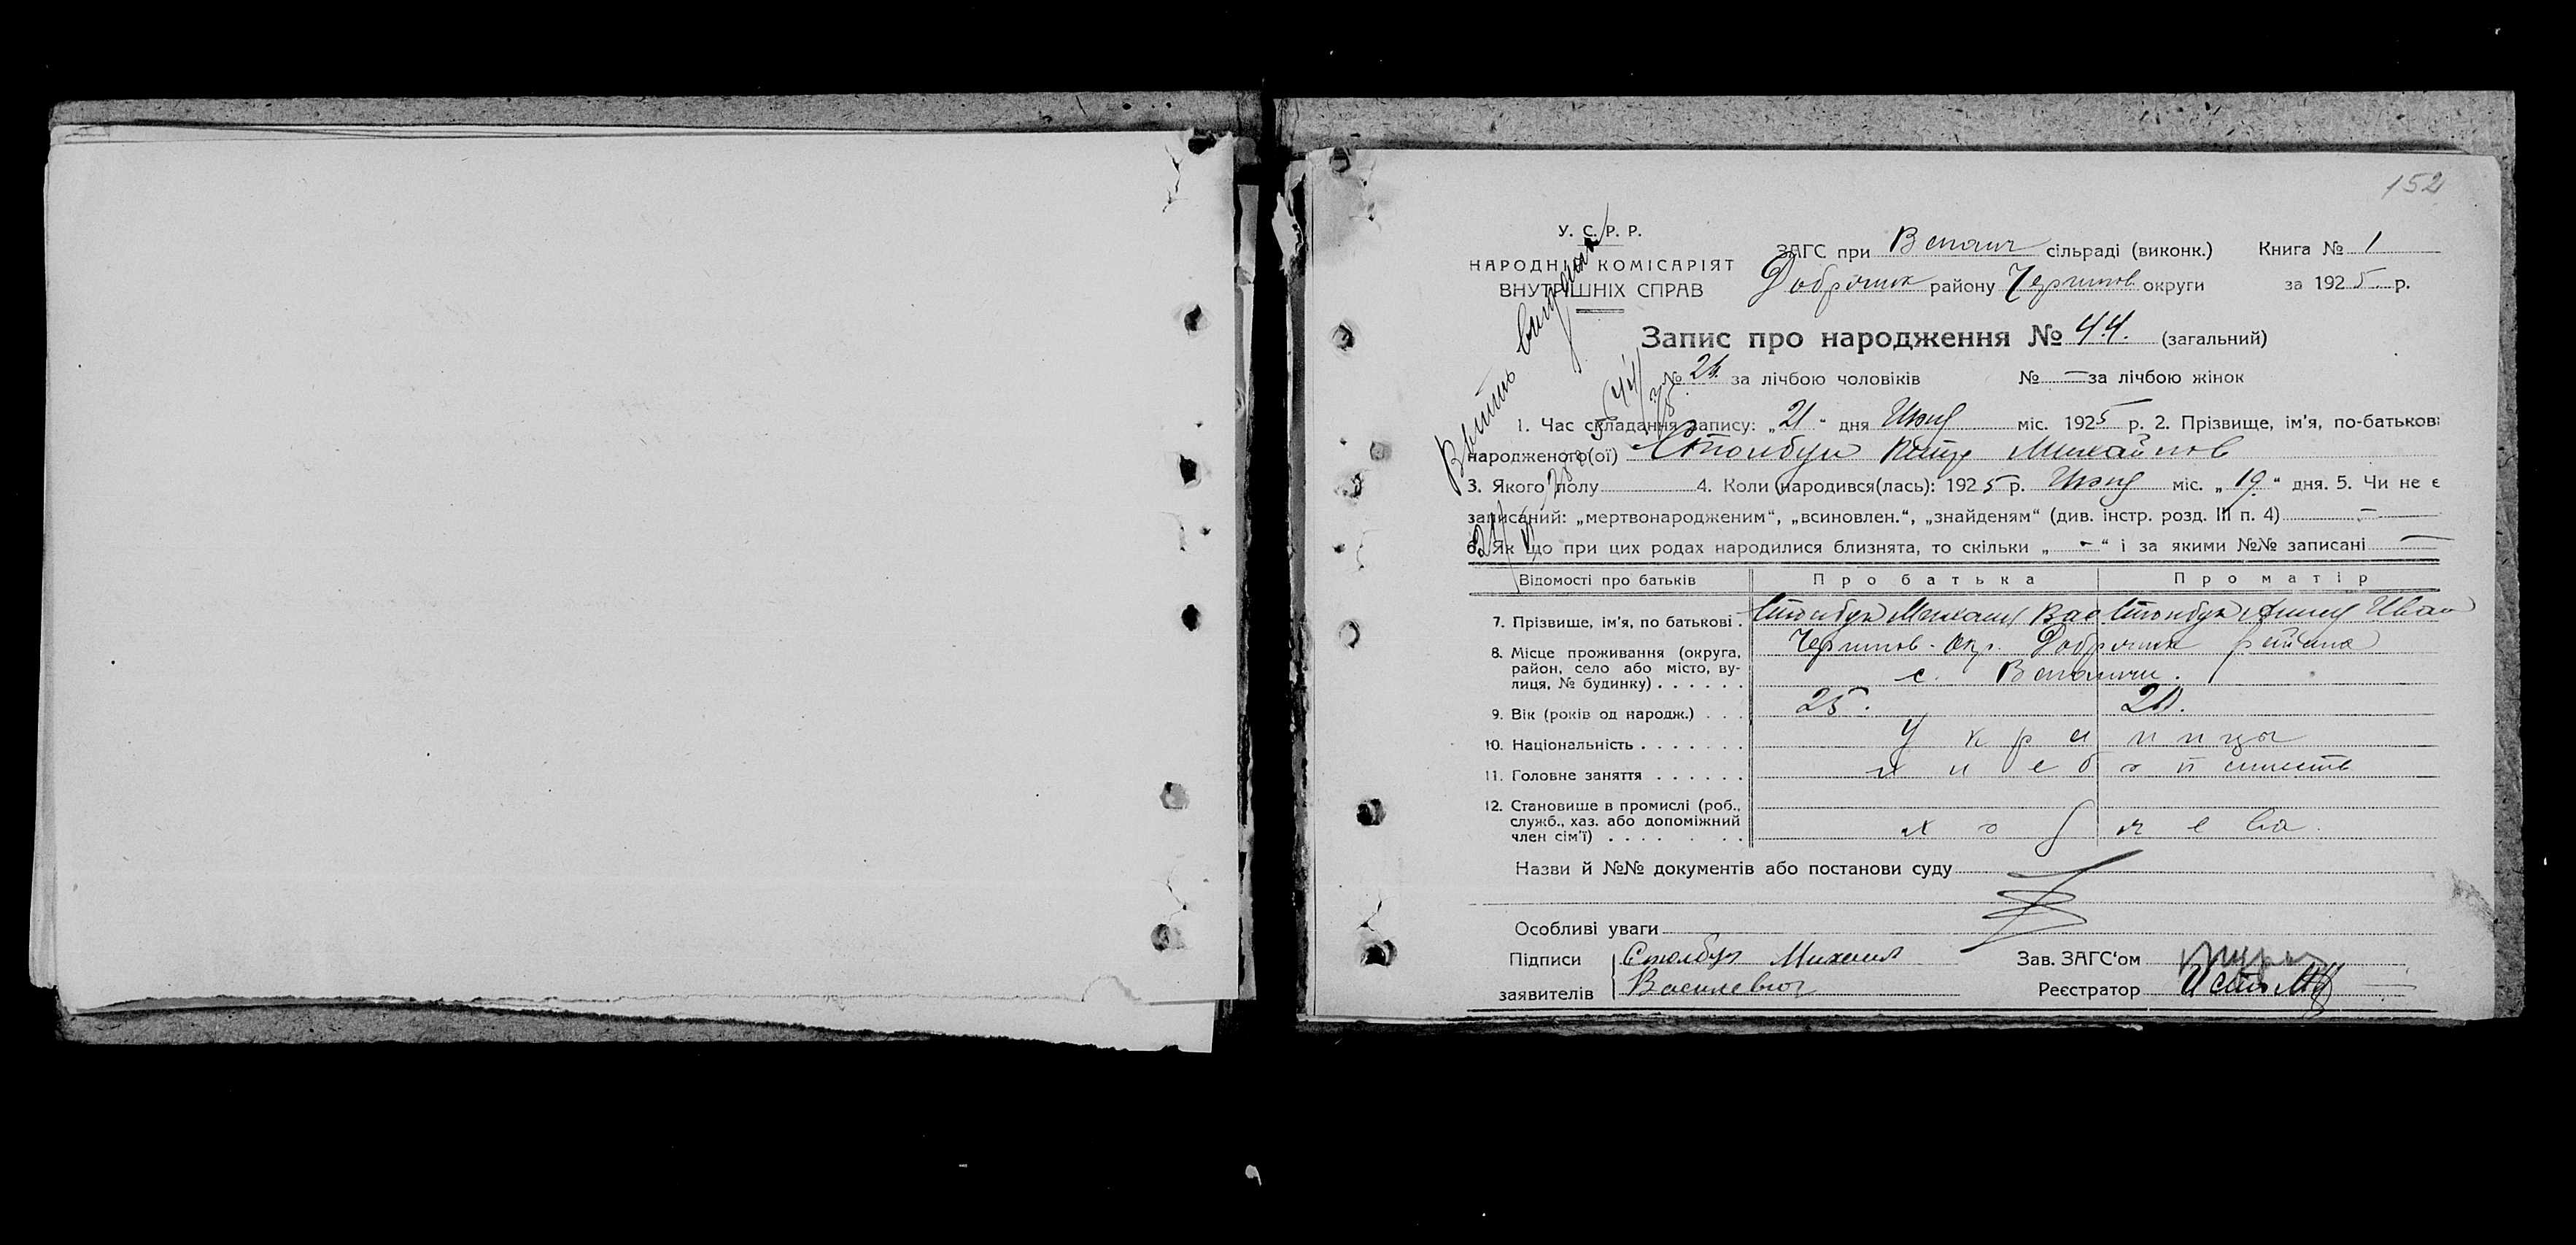 152
У. С. Р. Р.
НАРОДНІЙ КОМІСАРІЯТ
ВНУТРІШНІХ СПРАВ
ЗАГС при сільраді (виконк.) Книга № 1
району Чернигов округи за 1925 р.
Запис про народження № 44. (загальний)
№ за лічбою чоловіків № — за лічбою жінок
1. Час складання запису: „21“ дня міс. 1925 р. 2. Прізвище, ім’я, по-батькові
народженого(ої) Столбун Михайлов
3. Якого полу 4. Коли (народився(лась): 1925 р. міс. „19“ дня. 5. Чи не є
записаний: „мертвонародженим“, „всиновлен.“, „знайденям“ (див. інстр. розд. III п. 4) —
6. Як що при цих родах народилися близнята, то скільки „ - “ і за якими №№ записані —
Відомості про батьків Про батька Про матір
7. Прізвище, ім’я, по батькові . Столбун Михаил Вас Столбун Иван
8. Місце проживання (округа, Чернигов. окр. района
район, село або місто, ву-
лиця, № будинку) . . . . . . с.
9. Вік (років од народж.) . . . 25. 20.
10. Національність . . . . . . . Украинцы
11. Головне заняття . . . . . .
12. Становище в промислі (роб.,
служб., хаз. або допоміжний
член сім’ї) . . . . . . . . хозяева.
Назви й №№ документів або постанови суду
Особливі уваги
Підписи Столбун Михаил Зав. ЗАГС‘ом
заявителів Василевич Реєстратор